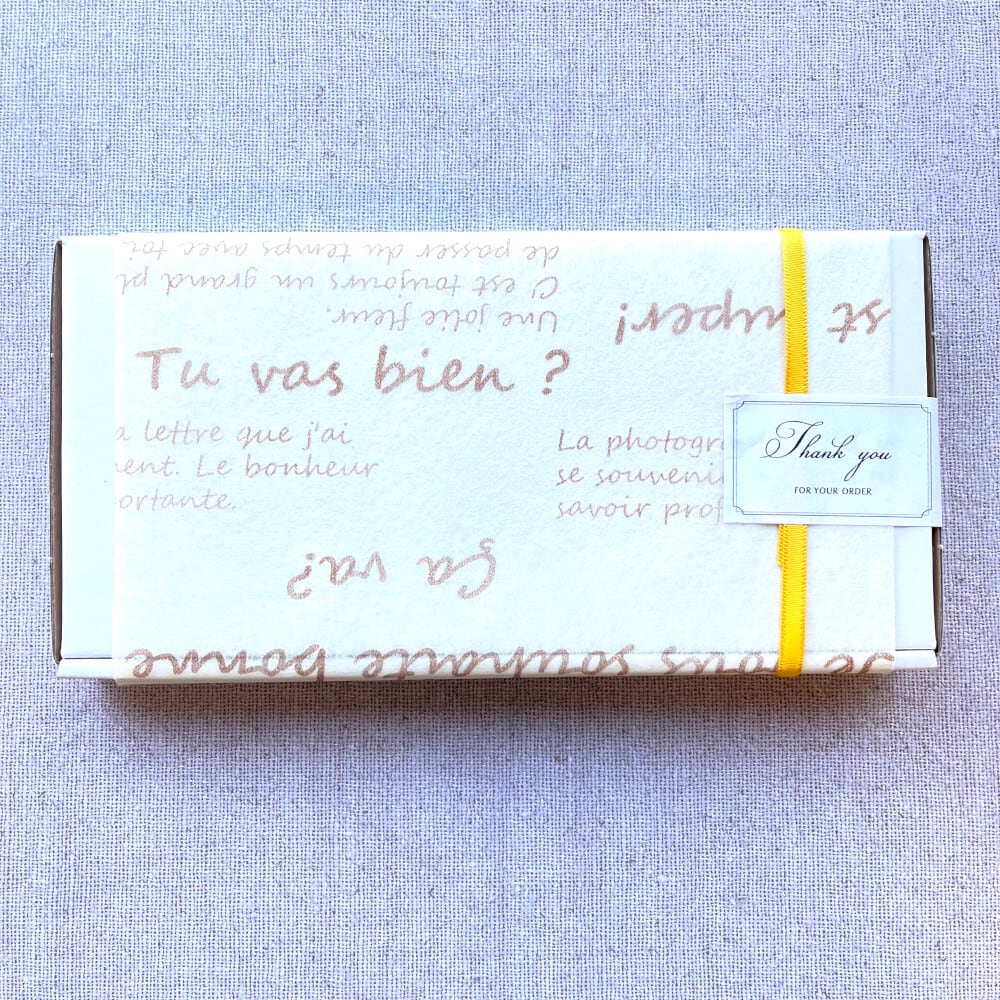 de passer du temps avec toi.
C'est toujours un grand
Une jolie fleur.
st super!
Tu vas bien ?
lettre que j'ai
Le bonheur
La
se
savoir
Thank you
FOR YOUR ORDER
Ça va?
Je vous souhaite bonne